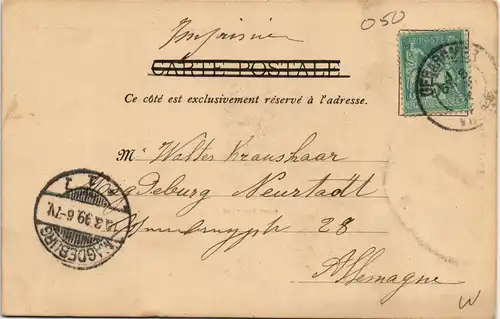 050
Imprimé
CARTE POSTALE
Ce côté est exclusivement réservé à l'adresse.
Mr Walter Kraushaar
Magdeburg Neustadt
28
Allemagne
MAGDEBURG
.3.99.6-7V.
W